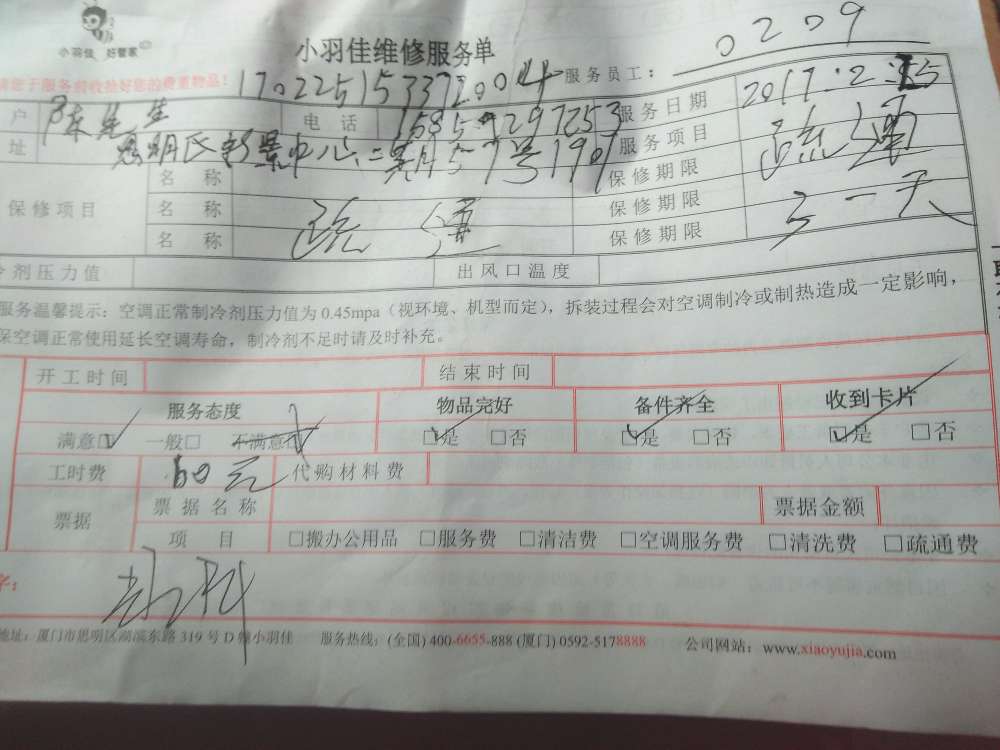 小羽佳 好管家
小羽佳维修服务单
0209
请您于服务前收拾好您的贵重物品！
170225153372004
服务员工：
户 陈先生 电 话 服务日期 2017.2.25
址 思明区 中心二期57号1901 服务项目 疏通
保修项目
名 称 保修期限
名 称 疏通 保修期限 三一天
名 称 保修期限
冷剂压力值 出风口温度
服务温馨提示：空调正常制冷剂压力值为 0.45mpa（视环境、机型而定），拆装过程会对空调制冷或制热造成一定影响，
保空调正常使用延长空调寿命，制冷剂不足时请及时补充。
开工时间 结束时间
服务态度 物品完好 备件齐全 收到卡片
满意☑ 一般□ 不满意☑ ☑是 □否 ☑是 □否 ☑是 □否
工时费 60元 代购材料费
票据 票据名称 票据金额
项 目 □搬办公用品 □服务费 □清洁费 □空调服务费 □清洗费 □疏通费
字：
地址：厦门市思明区湖滨东路 319 号 D 幢小羽佳 服务热线：(全国) 400-6655-888 (厦门) 0592-5178888 公司网站：www.xiaoyujia.com